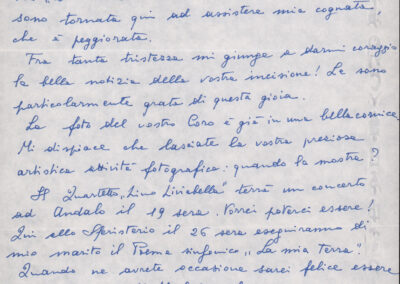 sono tornata qui ad assistere mia cognata,
che è peggiorata.
Fra tanta tristezza mi giunge a darmi coraggio
la bella notizia della vostra incisione! Le sono
particolarmente grata di questa gioia.
La foto del vostro Coro è già in una bella cornice.
Mi dispiace che lasciate la vostra preziosa
artistica attività fotografica: quando la mostra?
Il Quartetto „Lino Liviabella" terrà un concerto
ad Andalo il 19 sera. Vorrei poterci essere!
Qui allo Sferisterio il 26 sera eseguiranno di
mio marito il Poema sinfonico „La mia Terra".
Quando ne avrete occasione sarei felice essere